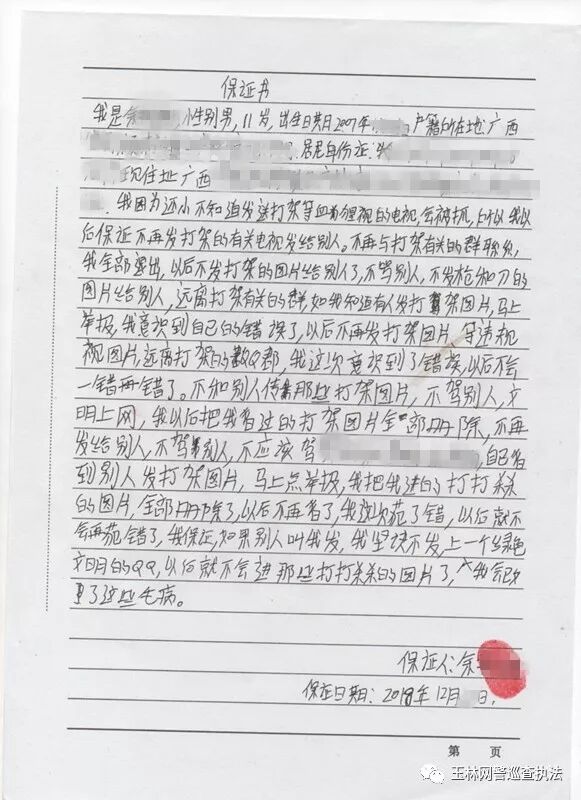 保证书
我是余 性别男,11岁,出生日期2007年 户籍所在地:广西
居民身份证:
现住址:广西
我因为还小不知道发送打架等血腥视的电视,会被抓,所以我以
后保证不再发打架的有关电视发给别人。不再与打架有关的群联系,
我全部退出,以后不发打架的图片给别人了,不骂别人,不发枪和刀的
图片给别人,远离打架有关的群,如我知道有人发打架图片,马上
举报,我意识到自己的错误了,以后不再发打架图片,等违规
视图片,远离打架的QQ群,我这次意识到了错误,以后不会
一错再错了。不和别人传那些打架图片,不驾别人,文
明上网,我以后把我看过的打架图片全部册除,不再
发给别人,不驾别人,不应该驾 自己看
到别人发打架图片,马上点举报,我把我进的打打杀杀
的图片,全部册除了,以后不再看了,我这次范了错,以后就不
会再范错了,我保证,如果别人叫我发,我坚决不发,上一个绿色
文明的QQ,以后就不会进那些打打杀杀的图片了,我会改
了这些毛病。
保证人:余
保证日期:2018年12月 日.
第 页
玉林网警巡查执法